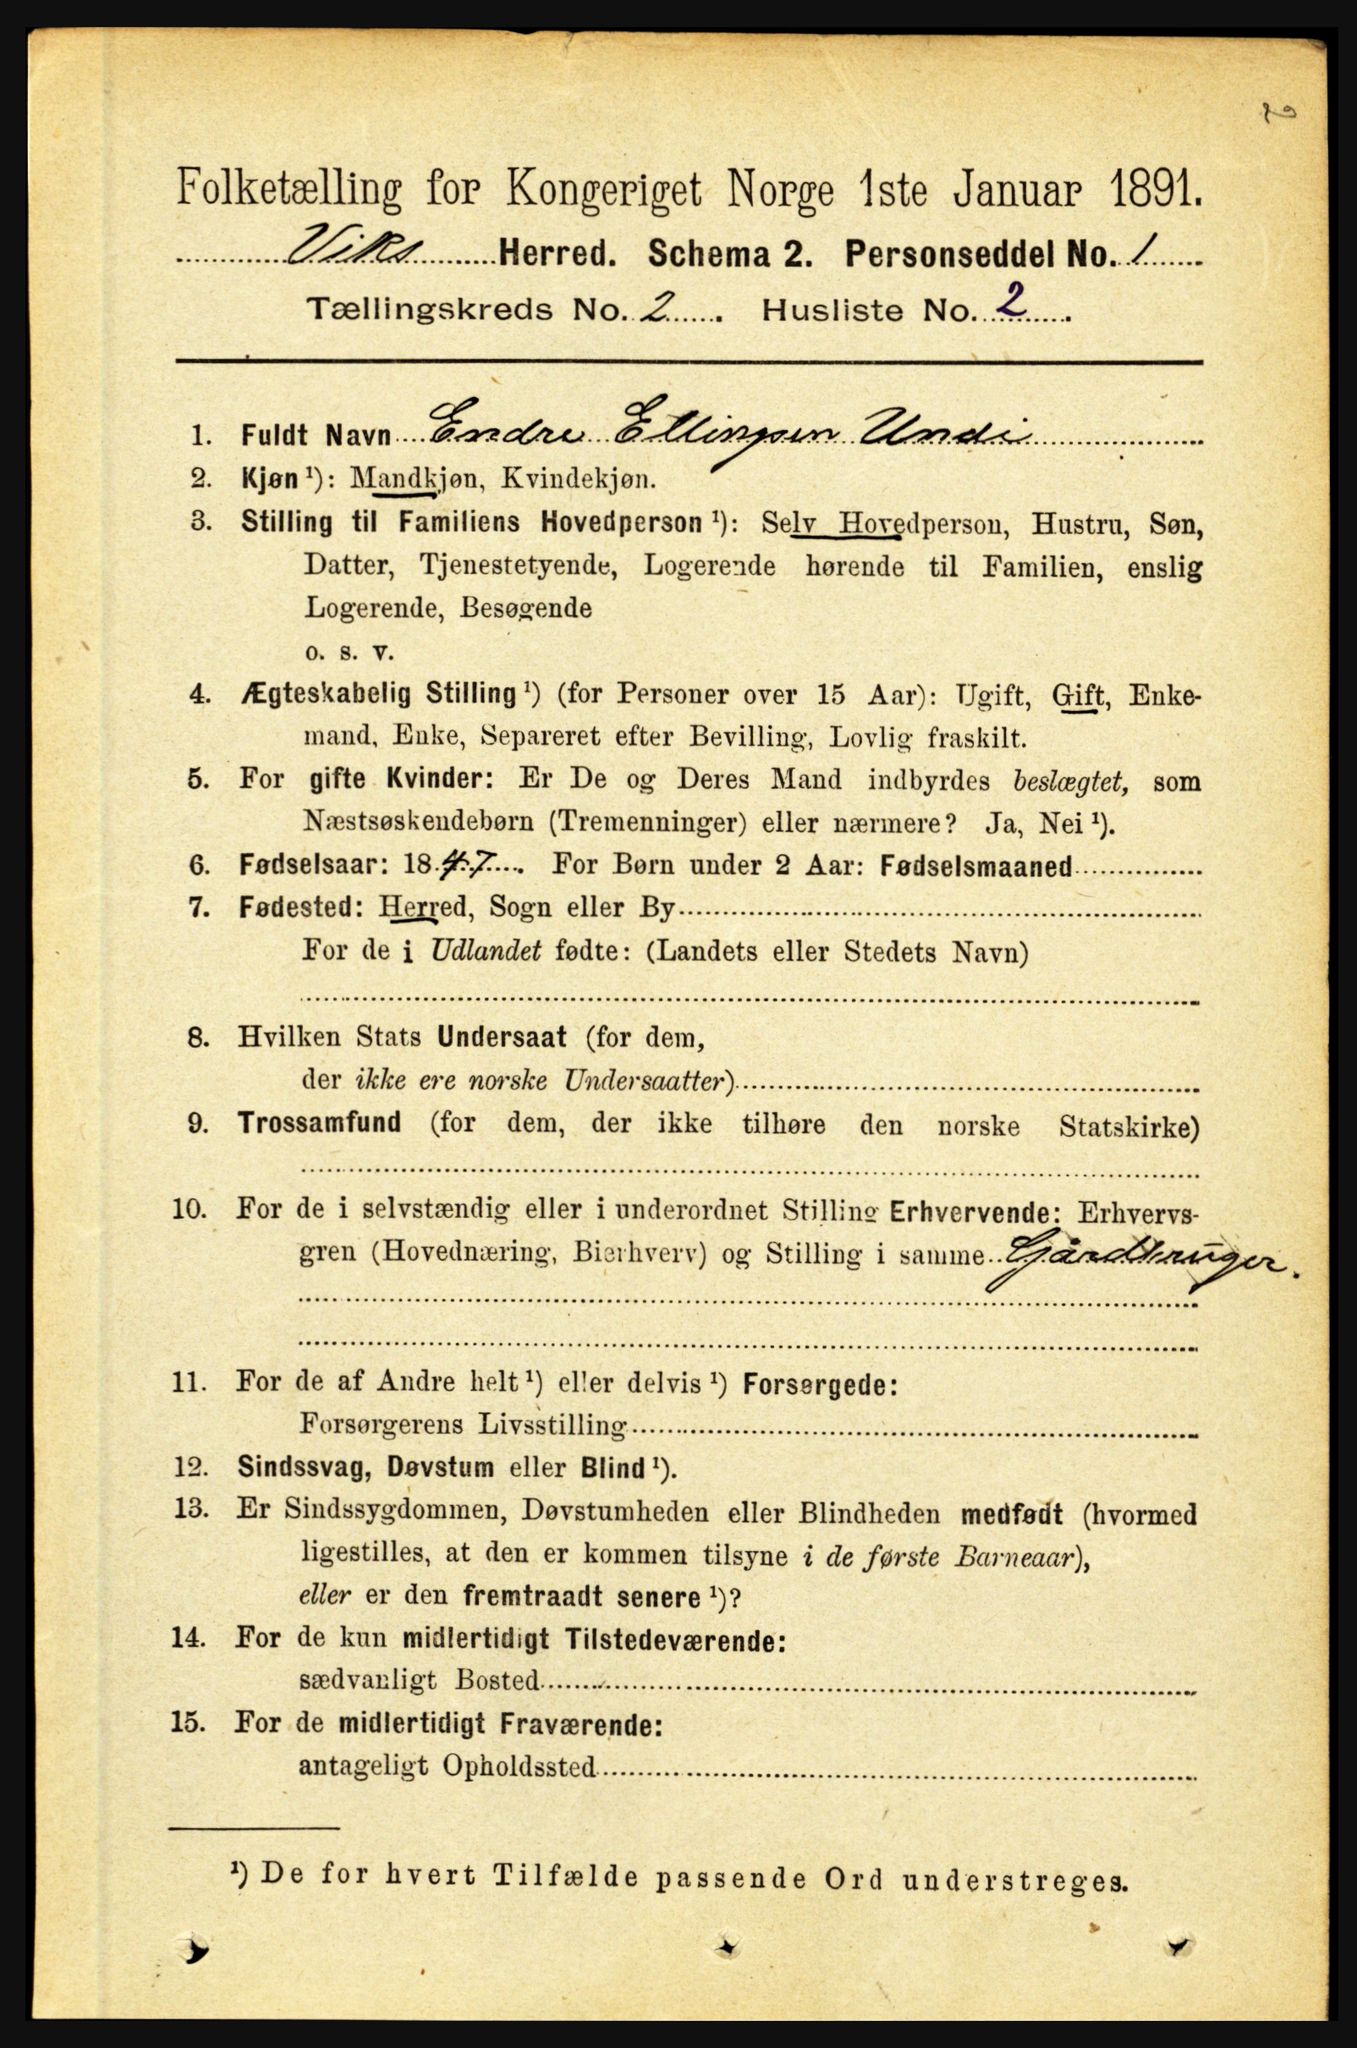 Folketælling for Kongeriget Norge 1ste Januar 1891.
Viks Herred. Schema 2. Personseddel No. 1
Tællingskreds No. 2. Husliste No. 2.
1. Fuldt Navn Endre Ellingsen Undi
2. Kjøn ¹): Mandkjøn, Kvindekjøn.
3. Stilling til Familiens Hovedperson ¹): Selv Hovedperson, Hustru, Søn,
Datter, Tjenestetyende, Logerende hørende til Familien, enslig
Logerende, Besøgende
o. s. v.
4. Ægteskabelig Stilling ¹) (for Personer over 15 Aar): Ugift, Gift, Enke-
mand, Enke, Separeret efter Bevilling, Lovlig fraskilt.
5. For gifte Kvinder: Er De og Deres Mand indbyrdes beslægtet, som
Næstsøskendebørn (Tremenninger) eller nærmere? Ja, Nei ¹).
6. Fødselsaar: 1847. For Børn under 2 Aar: Fødselsmaaned
7. Fødested: Herred, Sogn eller By
For de i Udlandet fødte: (Landets eller Stedets Navn)
8. Hvilken Stats Undersaat (for dem,
der ikke ere norske Undersaatter)
9. Trossamfund (for dem, der ikke tilhøre den norske Statskirke)
10. For de i selvstændig eller i underordnet Stilling Erhvervende: Erhvervs-
gren (Hovednæring, Bierhverv) og Stilling i samme Gårdbruger.
11. For de af Andre helt ¹) eller delvis ¹) Forsørgede:
Forsørgerens Livsstilling
12. Sindssvag, Døvstum eller Blind ¹).
13. Er Sindssygdommen, Døvstumheden eller Blindheden medfødt (hvormed
ligestilles, at den er kommen tilsyne i de første Barneaar),
eller er den fremtraadt senere ¹)?
14. For de kun midlertidigt Tilstedeværende:
sædvanligt Bosted
15. For de midlertidigt Fraværende:
antageligt Opholdssted
¹) De for hvert Tilfælde passende Ord understreges.